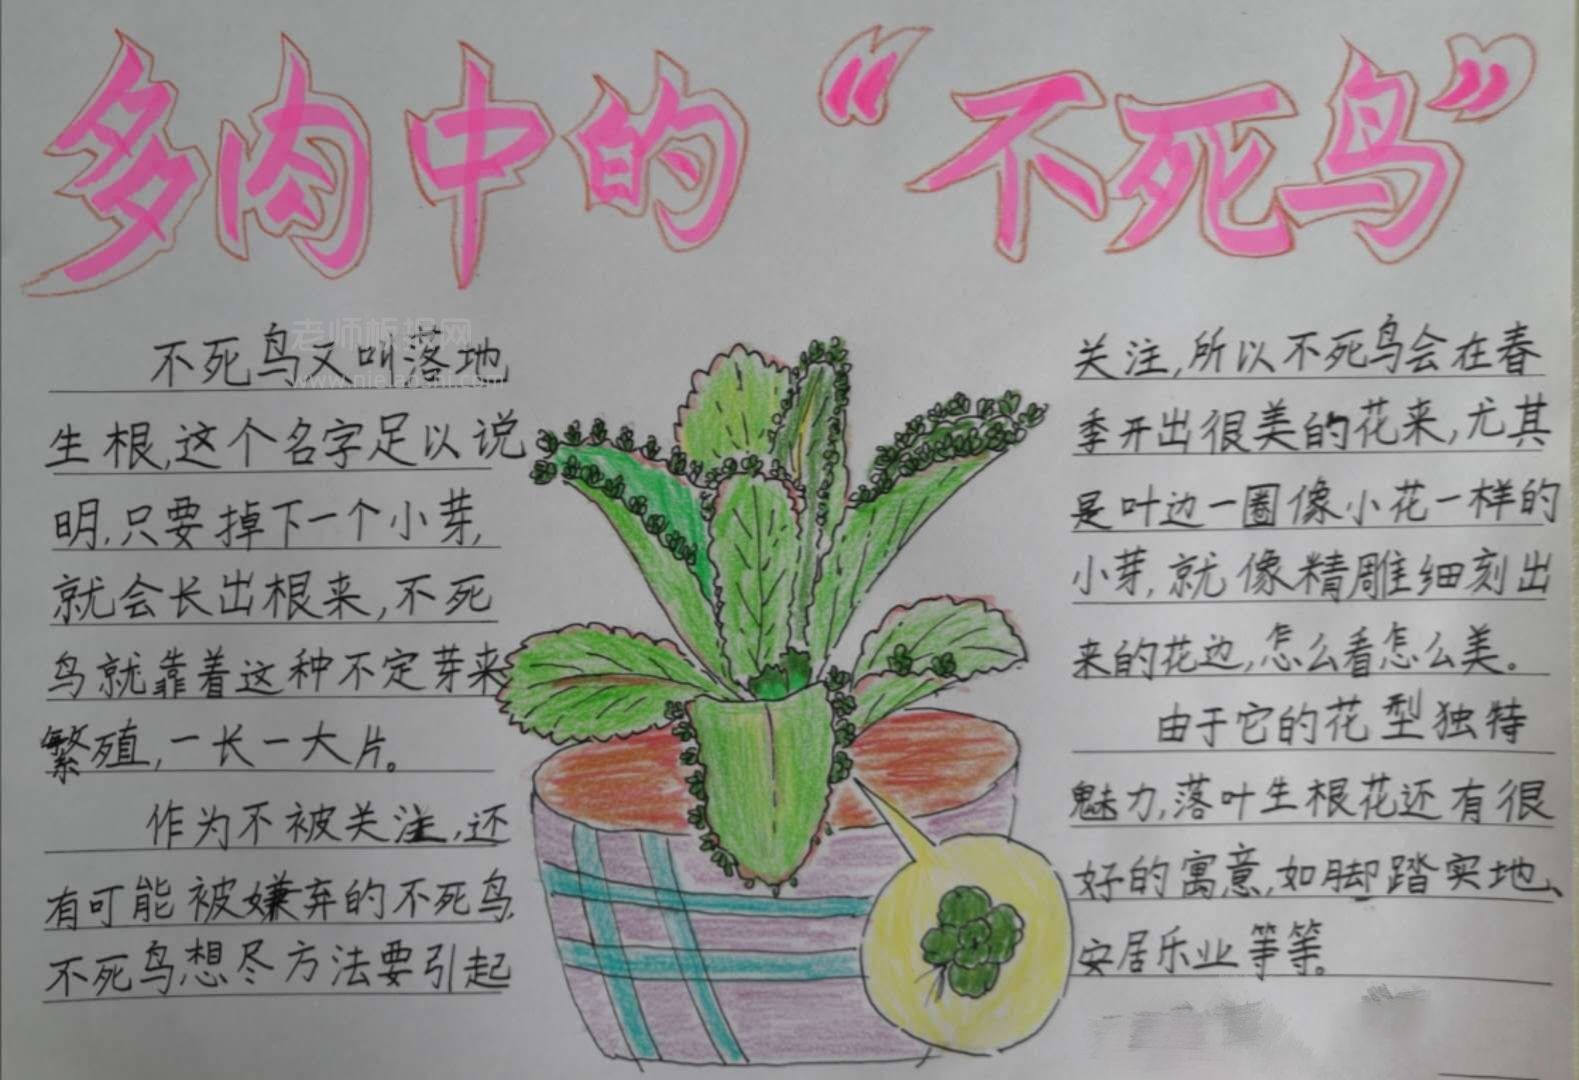 多肉中的“不死鸟”
老师板报网
不死鸟又叫落地
生根,这个名字足以说
明,只要掉下一个小芽,
就会长出根来,不死
鸟就靠着这种不定芽来
繁殖,一长一大片。
作为不被关注,还
有可能被嫌弃的不死鸟,
不死鸟想尽方法要引起
关注,所以不死鸟会在春
季开出很美的花来,尤其
是叶边一圈像小花一样的
小芽,就像精雕细刻出
来的花边,怎么看怎么美。
由于它的花型独特
魅力,落叶生根花还有很
好的寓意,如脚踏实地、
安居乐业等等。